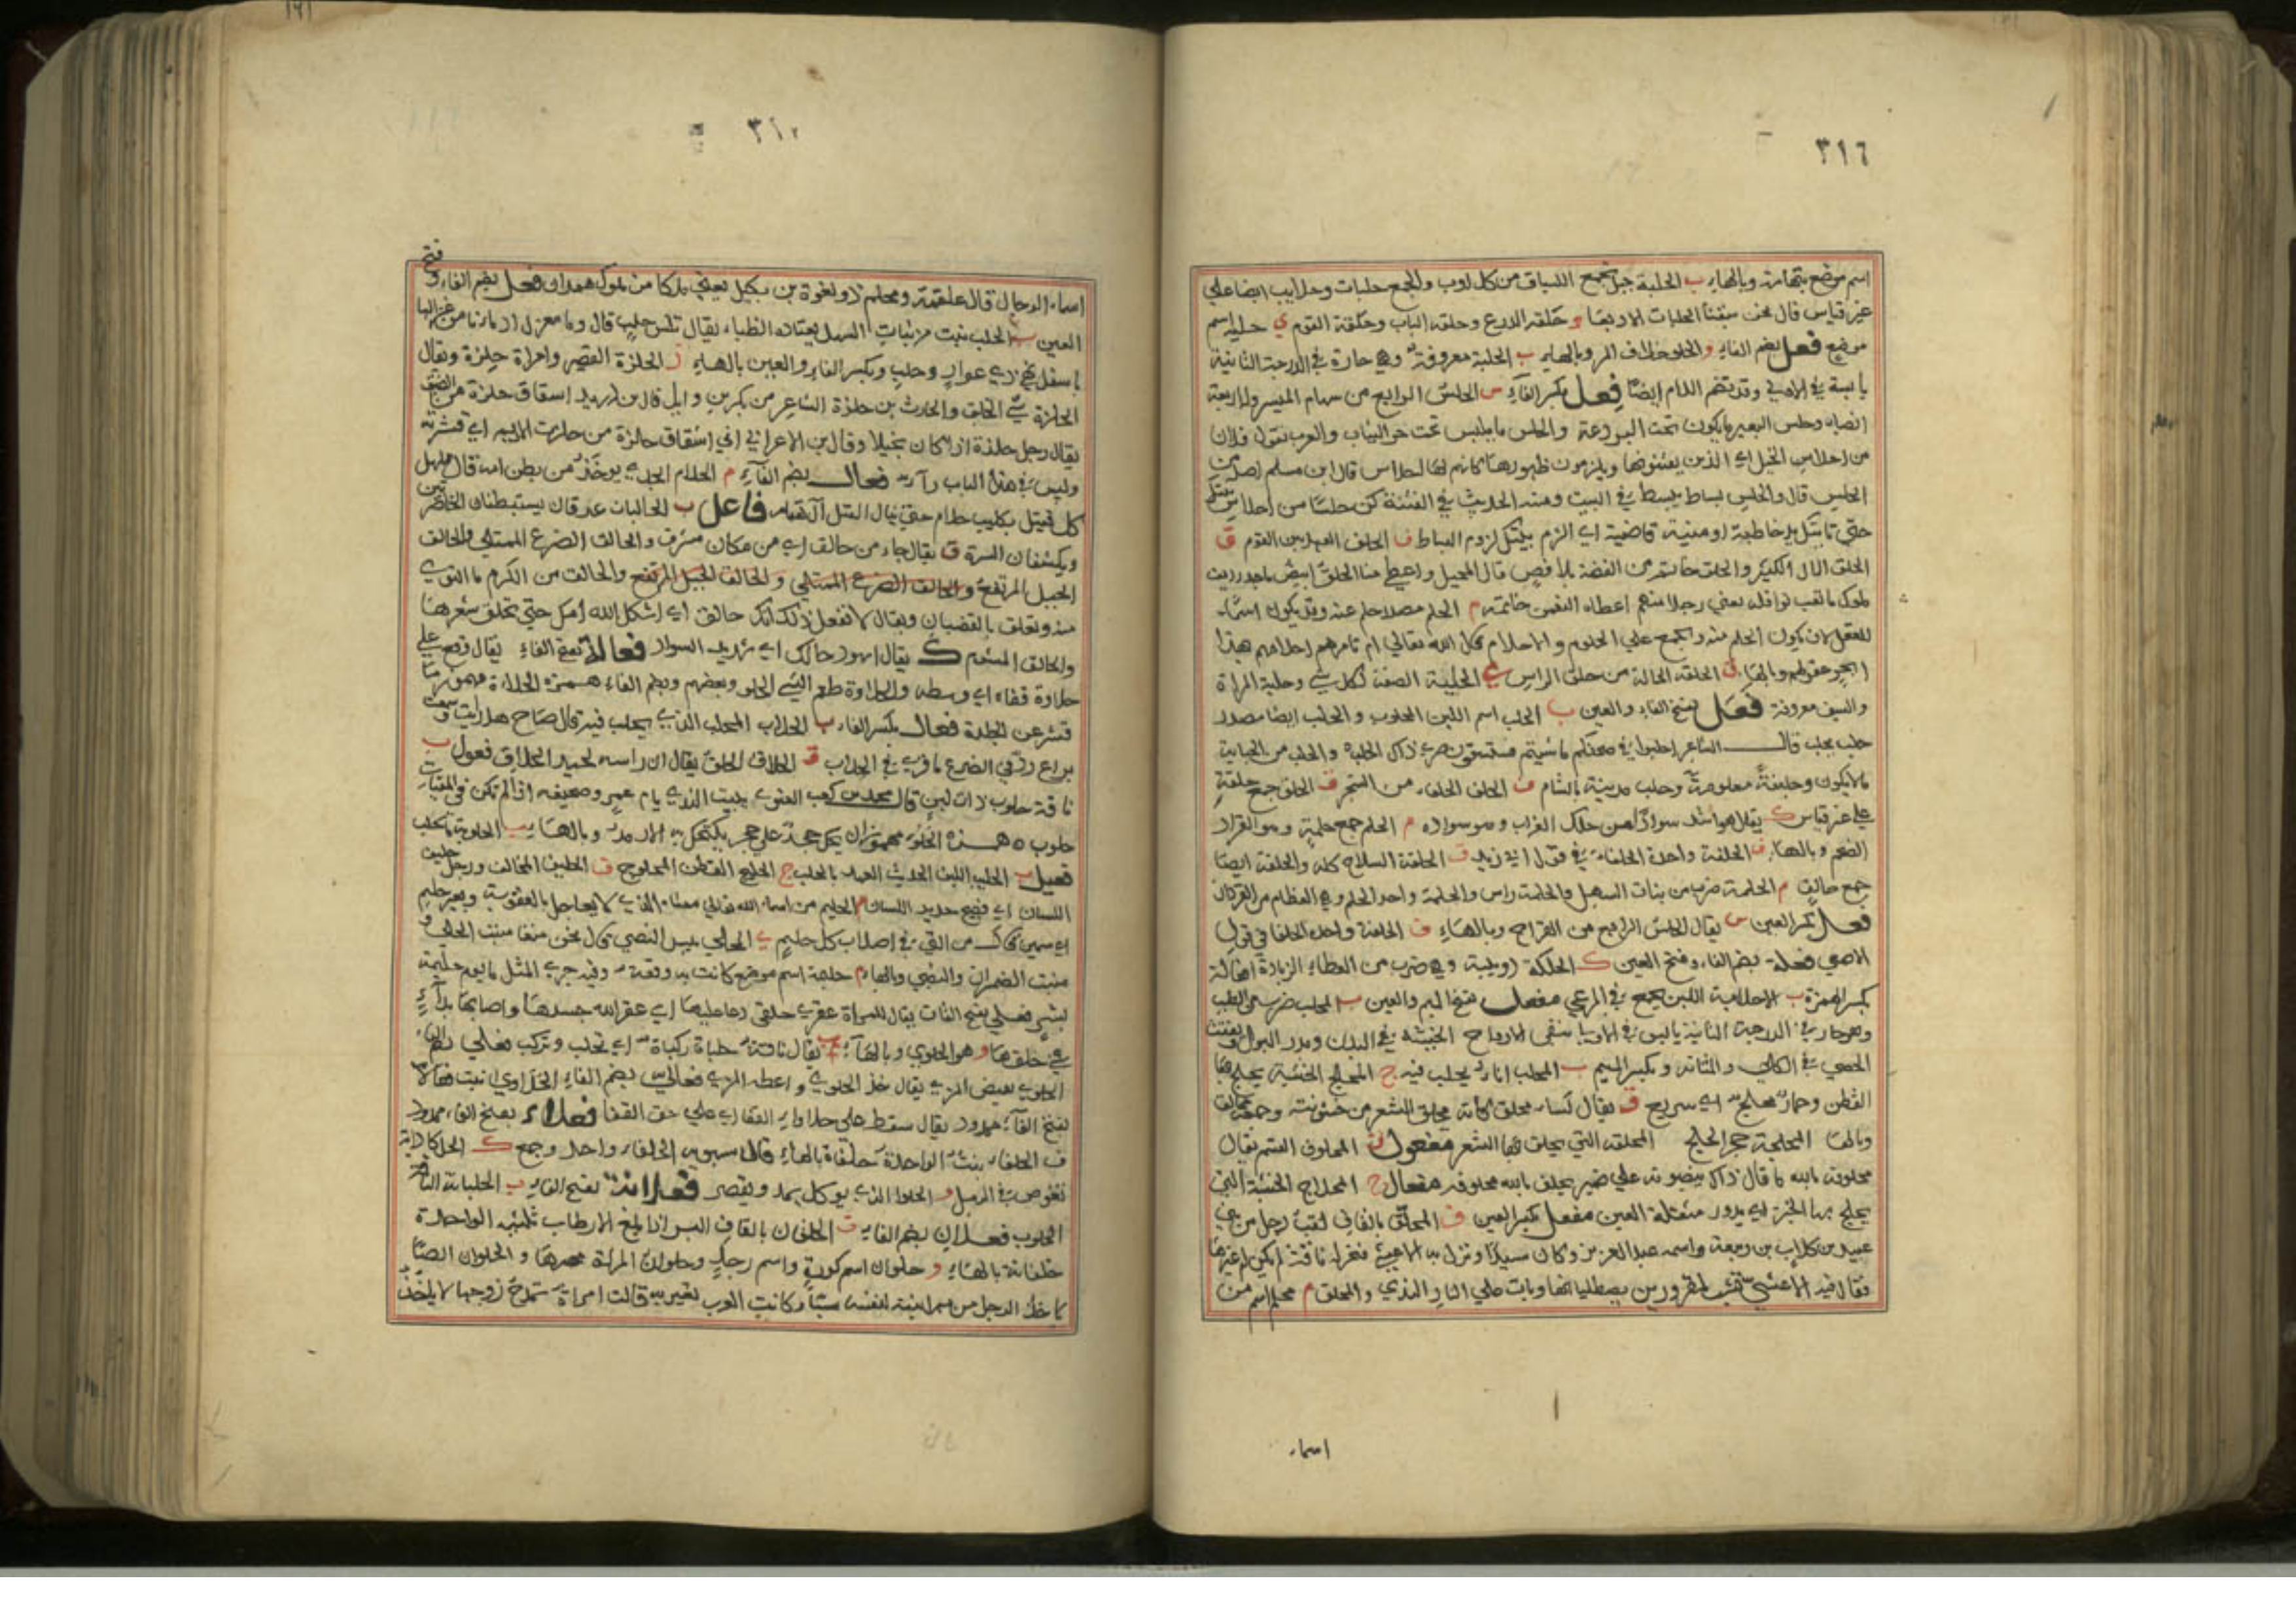 ٣١٦
اسم موضع بتهامة وبالهاء ب الحلبة خيل تجمع للسباق من كل اوب والجمع حلبات وحلايب ايضا على
غير قياس قال نحن سبقنا الحلبات الاربعا و حلقة الدرع وحلقة الباب وحلقة القوم ي حلية اسم
موضع فعل بضم الفاء و الحلو خلاف المر وبالهاء ب الحلبة معروفة وهي حارة في الدرجة الثانية
يابسة في الاولى وقد تضم اللام ايضا فعل بكسر الفاء س الحلس الرابع من سهام الميسر وله اربعة
انصباء وحلس البعير ما يكون تحت البرذعة والحلس ما يبسط تحت حر الثياب والعرب تقول فلان
من احلاس الخيل اي الذين يقتنونها ويلزمون ظهورها كانهم لها احلاس قال ابن مسلم اصله من
الحلس قال والحلس بساط يبسط في البيت ومنه الحديث في الفتنة كن حلسا من احلاس بيتك
حتى تاتيك يد خاطية او منية قاضية اي الزم بيتك لزوم البساط ف الحلف العهد بين القوم ق
الحلق المال الكثير والحلق خاتم من الفضة بلا فص قال المخبل واعطي منا الحلق ابيض ماجد رديف
ملوك ما تغب نوافله يعني رجلا منهم اعطاه النعمن خاتمه م الحلم مصدر حلم عنه وقد يكون اسما
للعقل لان يكون الحلم منه ويجمع على الحلوم والاحلام قال الله تعالى ام تامرهم احلامهم بهذا
اي عقولهم وبالهاء ق الحلقة الحالة من حلق الراس ي الحلية الصفة لكل شي وحلية المراة
والسيف معروفة فعل بفتح الفاء والعين ب الحلب اسم اللبن المحلوب والحلب ايضا مصدر
حلب يحلب قال الشاعر
ما لا يكون وظيفة معلومة وحلب مدينة بالشام ف الحلف الحلفاء من الشجر ق الحلق جمع حلقة
على غير قياس ك يقال هو اشد سوادا من حلك الغراب وهو سواده م الحلم جمع حلمة وهو القراد
الضخم وبالهاء ف الحلفة واحدة الحلفاء في قول ابي زيد ق الحلقة السلاح كله والحلقة ايضا
جمع حالق م الحلمة ضرب من نبات السهل والحلمة راس والحلمة واحد الحلم وهي العظام من القردان
فعل بكسر العين س يقال الحلس الرابع من القداح وبالهاء ف الحلفة واحدة الحلفا في قول
الاصمعي فعلة بضم الفاء وفتح العين ك الحلكة دويبة وهي ضرب من العظاء الزيادة افعالة
بكسر الهمزة ب الاحلابة اللبن يجمع في المرعى مفعل بفتح الميم والعين ب المحلب ضرب من الطيب
وهو حار في الدرجة الثانية يابس في الاولى ينقي الارواح الخبيثة في البدن ويدر البول ويفتت
الحصى في الكلى والمثانة وبكسر الميم ب المحلب اناء يحلب فيه ج المحلج الخشبة يحلج بها
القطن وحمار محلج اي سريع ق يقال كساء محلق كانه يحلق الشعر من خشونته وجمعه محالق
وبالهاء المحلجة حجر الحليج المحلقة التي يحلق بها الشعر مفعول ف المحلوف القسم يقال
محلوفة بالله ما قال ذاك ينصبونه على ضمير يحلف بالله محلوفة مفعال ج المحلاج الخشبة التي
يحلج بها الخبزة اي يدور مثقلة العين مفعل بكسر العين ق المحلق بالقاف لقب رجل من بني
عبيد بن كلاب بن ربيعة واسمه عبد العزيز وكان سيدا ونزل به الاعشى فنحر له ناقة لم يكن له غيرها
فقال فيه الاعشى تشب لمقرورين يصطليانها وبات على النار الندى والمحلق م محلم اسم من
اسماء
٣١٠
فتح
اسماء الرجال قال علقمة ومحلم ذو لغوة بن بكيل يعني ملكا من ملوك همدان فعل بضم الفاء و
العين ب الحلب نبت من نبات السهل يعتاده الظباء يقال تيس حلب قال وما مغزل
باسفل ذي عوار وحلب وبكسر الفاء والعين بالهاء ز الحلزة القصير وامراة حلزة ويقال
الحلزة سيء الخلق والحارث بن حلزة الشاعر من بكر بن وايل قال بن دريد اشتقاق حلزة من الضيق
يقال رجل حلزة اذا كان بخيلا وقال بن الاعرابي اني اشتقاق حلزة من حلزت الاديم اي قشرته
وليس في هذا الباب رآء فعال بضم الفآء م الحلام الجدي يوخذ من بطن امه قال مهلهل
كل قتيل بكليب حلام حتى ينال القتل آل همام فاعل ب الحالبان عرقان يستبطنان الخاصرتين
ويكتنفان السرة ق يقال جاء من حالق اي من مكان مشرف والحالق الضرع الممتلي والحالق
الجبل المرتفع والحالق الضرع الممتلي والحالق الجبل المرتفع والحالق من الكرم ما التوى
منه وتعلق بالقضبان ويقال لا تفعل ذلك امك حالق اي اثكل الله امك حتى تحلق شعرها
والحالق المشئوم ك يقال اسود حالك اي شديد السواد فعالة بفتح الفاء يقال وقع على
حلاوة قفاه اي وسطه والحلاوة طعم الشي الحلو وبعضهم وبضم الفاء همزة الحلاءة مهموز ما
قشر عن الجلدة فعال بكسر الفاء ب الحلاب المحلب الذي يحلب فيه قال صاح هل رايت او سمعت
براع رد في الضرع ما قرى في الحلاب ق الحلاق الحلق يقال ان راسه لجيد الحلاق فعول ب
ناقة حلوب ذات لبن قال محمد بن كعب الغنوي يبيت الندى يا ام عمرو ضجيعه اذا لم تكن في المنقيات
حلوب ٥ همزة الحلوء مهموز ان يحك حجر على حجر يكتحل به الارمد وبالهاء ب الحلوبة ما تحلب
فعيل ب الحليب اللبن الحديث العهد بالحلب ج الحليج القطن المحلوج ف الحليف المحالف ورجل حليف
اللسان اي فصيح حديد اللسان م الحليم من اسماء الله تعالى معناه الذي لا يعاجل بالعقوبة وبعير حليم
اي سمين قال من القي في اصلاب كل حليم ي الحلي يبيس النصي قال نحن منعنا منبت الحلي و
منبت الضمران والنصي وبالهاء م حليمة اسم موضع كانت به وقعة وفيه جرى المثل ما يوم حليمة
بسر فعلى بفتح الفاء يقال للمراة عقرى حلقى دعا عليها اي عقر الله جسدها واصابها بداء
في حلقها و هو الحلوى وبالهاء ب يقال ناقة حلباة ركباة اي تحلب وتركب فعلى بضم الفاء
الحلوى نقيض المرى يقال خذ الحلوى واعطه المرى فعالى بضم الفاء الحلاوى نبت فعالاء
بفتح الفآء ممدود يقال سقط على حلاواء القفا اي على حق القفا فعلاء بفتح الفاء ممدود
ف الحلفاء نبت الواحدة حلفاة بالهاء قال سيبويه الحلفاء واحد وجمع ك الحلكاء دابة
تغوص في الرمل و الحلوا الذي يوكل يمد ويقصر فعلانة بفتح الفاء ب الحلبانة الناقة
الحلوب فعلان بضم الفاء ق الحلقان بالقاف البسر اذا بلغ الارطاب ثلثيه الواحدة
حلقانة بالهاء و حلوان اسم كورة واسم رجل وحلوان المراة مهرها والحلوان ايضا
ياخذ الرجل من مهر ابنته لنفسه شيئا وكانت العرب تعير به قالت امراة تمدح زوجها لا ياخذ